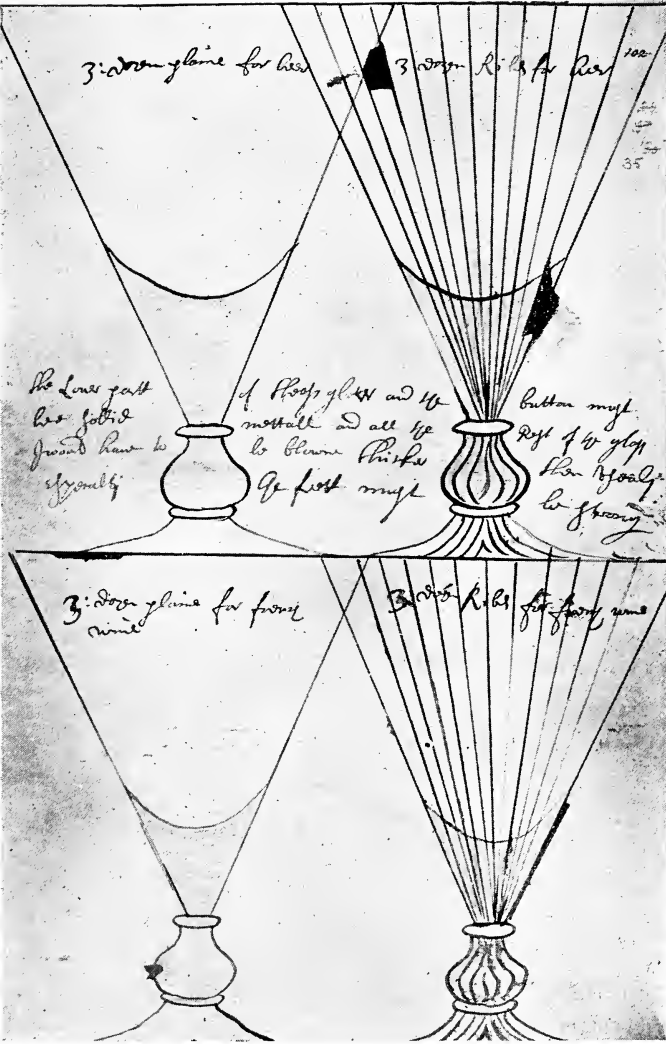 3: dozen plaine for beer
3 dozen Ribs for beer
102
35
the Lower part of theese glases and the button must
bee sollid mettall and all the Rest of the glass
I would have to be blowne thicker then
espeacially the feett must be strong
3: dozen plaine for frenc
wine
3: dozen Ribs for frenc wine